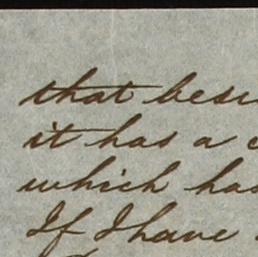 that
it has a
which has
If I have